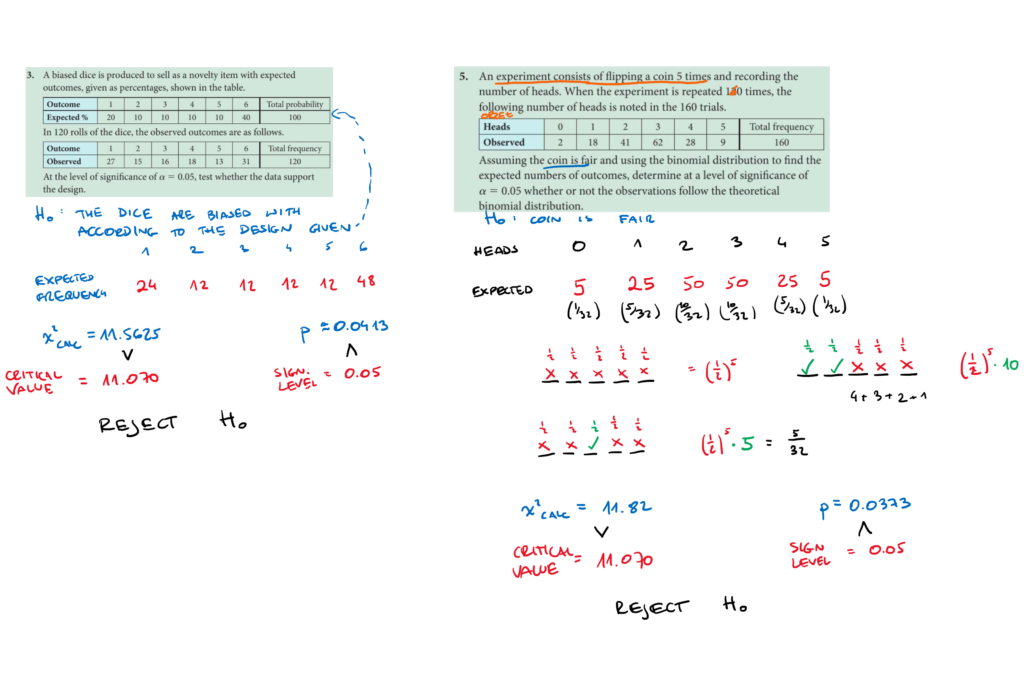 3. A biased dice is produced to sell as a novelty item with expected
outcomes, given as percentages, shown in the table.
Outcome 1 2 3 4 5 6 Total probability
Expected % 20 10 10 10 10 40 100
In 120 rolls of the dice, the observed outcomes are as follows.
Outcome 1 2 3 4 5 6 Total frequency
Observed 27 15 16 18 13 31 120
At the level of significance of α = 0.05, test whether the data support
the design.
H₀: THE DICE ARE BIASED WITH
ACCORDING TO THE DESIGN GIVEN
1 2 3 4 5 6
EXPECTED
FREQUENCY 24 12 12 12 12 48
x²CALC = 11.5625
p = 0.0413
V
Λ
CRITICAL
VALUE = 11.070
SIGN.
LEVEL = 0.05
REJECT H₀
5. An experiment consists of flipping a coin 5 times and recording the
number of heads. When the experiment is repeated 160 times, the
following number of heads is noted in the 160 trials.
Heads 0 1 2 3 4 5 Total frequency
Observed 2 18 41 62 28 9 160
Assuming the coin is fair and using the binomial distribution to find the
expected numbers of outcomes, determine at a level of significance of
α = 0.05 whether or not the observations follow the theoretical
binomial distribution.
H₀: COIN IS FAIR
HEADS 0 1 2 3 4 5
EXPECTED 5 25 50 50 25 5
(1/32) (5/32) (10/32) (10/32) (5/32) (1/32)
½ ½ ½ ½ ½
x x x x x = (½)⁵
½ ½ ½ ½ ½
✓ ✓ x x x (½)⁵ · 10
4+3+2+1
½ ½ ½ ½ ½
x x ✓ x x (½)⁵ · 5 = 5/32
x²CALC = 11.82
p = 0.0373
V
Λ
CRITICAL
VALUE = 11.070
SIGN
LEVEL = 0.05
REJECT H₀